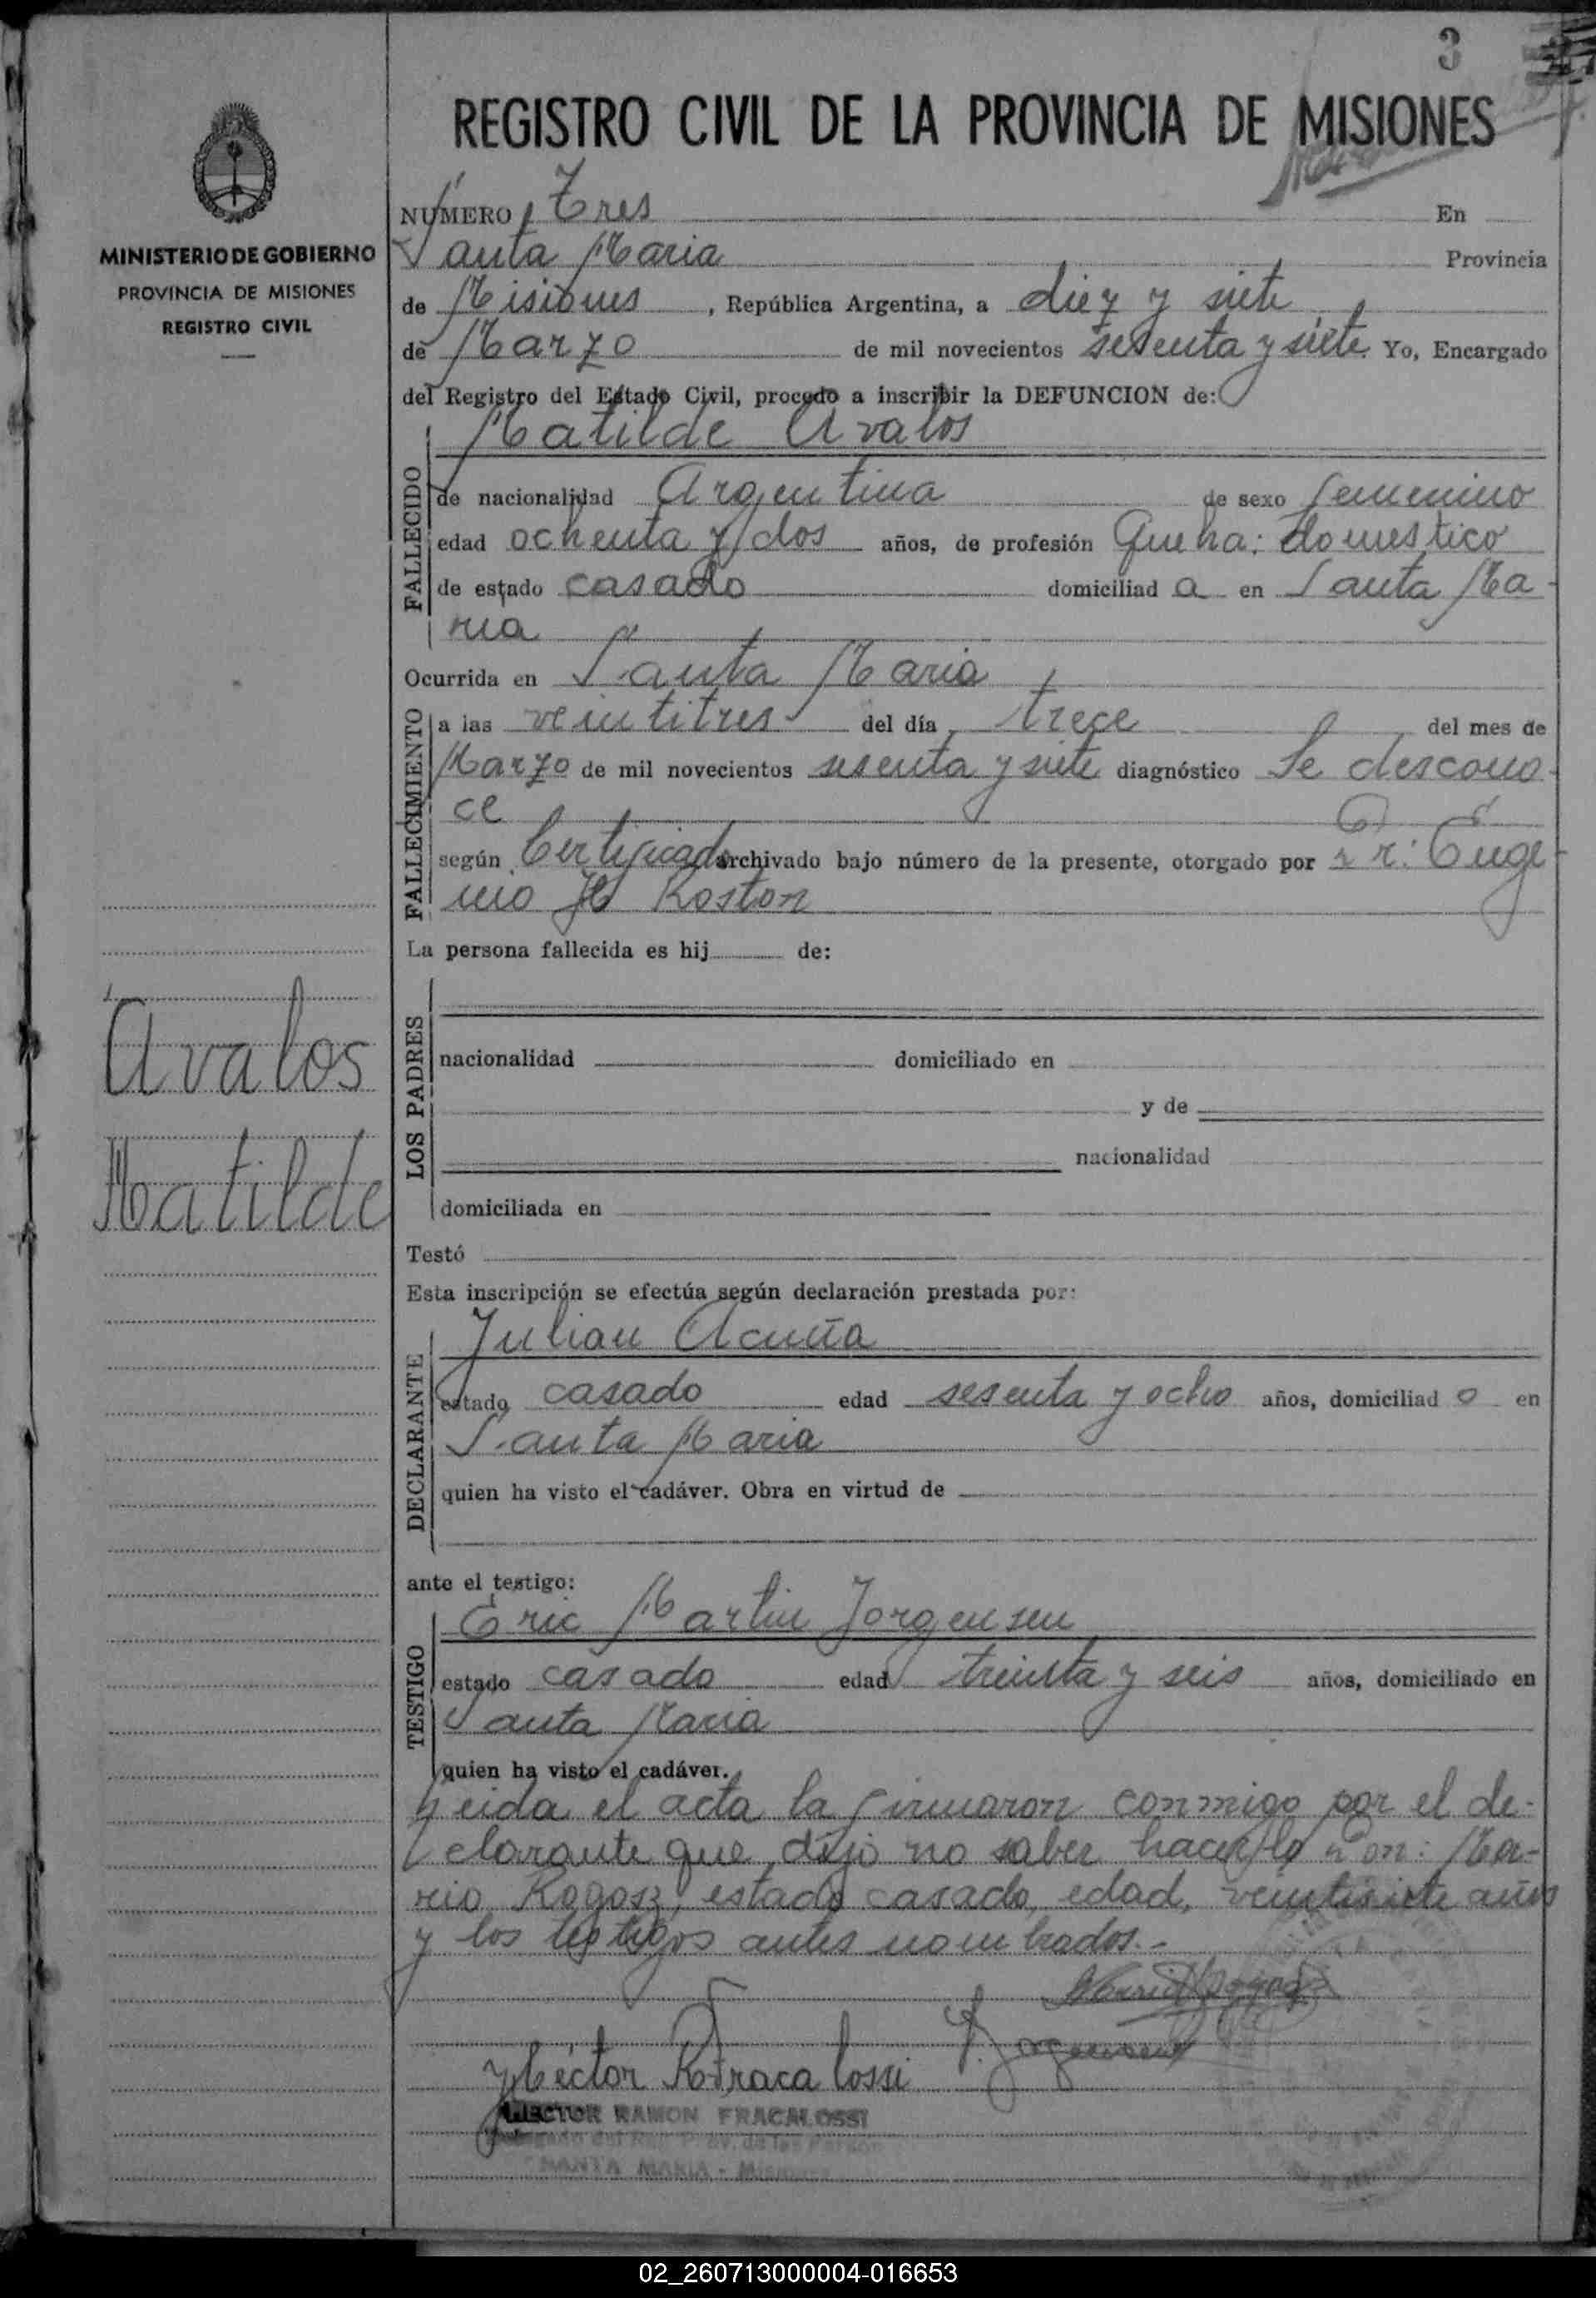 3
REGISTRO CIVIL DE LA PROVINCIA DE MISIONES
MINISTERIO DE GOBIERNO
PROVINCIA DE MISIONES
REGISTRO CIVIL
NUMERO Tres En
Santa Maria Provincia
de Misiones, República Argentina, a diez y siete
de Marzo de mil novecientos sesenta y siete Yo, Encargado
del Registro del Estado Civil, procedo a inscribir la DEFUNCION de:
Matilde Avalos
FALLECIDO
de nacionalidad Argentina de sexo femenino
edad ochenta y dos años, de profesión Queha: domestico
de estado casado domiciliad a en Santa Ma-
ria
Ocurrida en Santa Maria
FALLECIMIENTO
a las veintitres del día trece del mes de
Marzo de mil novecientos sesenta y siete diagnóstico Se descono-
ce
según Certificado archivado bajo número de la presente, otorgado por Dr: Euge-
nio H Koston
La persona fallecida es hij de:
Avalos
Matilde
LOS PADRES
nacionalidad domiciliado en
y de
nacionalidad
domiciliada en
Testó
Esta inscripción se efectúa según declaración prestada por:
Julian Acuña
DECLARANTE
estado casado edad sesenta y ocho años, domiciliad o en
Santa Maria
quien ha visto el cadáver. Obra en virtud de
ante el testigo:
Eric Martin Jorgensen
TESTIGO
estado casado edad treinta y seis años, domiciliado en
Santa Maria
quien ha visto el cadáver.
Leida el acta la firmaron conmigo por el de-
clarante que dijo no saber hacerlo Don: Ma-
rio Rogosz, estado casado, edad, veintisiete años
y los testigos antes nombrados.-
Héctor R Fracalossi
Jorgensen
HECTOR RAMON FRACALOSSI
SANTA MARIA - Misiones
02_260713000004-016653